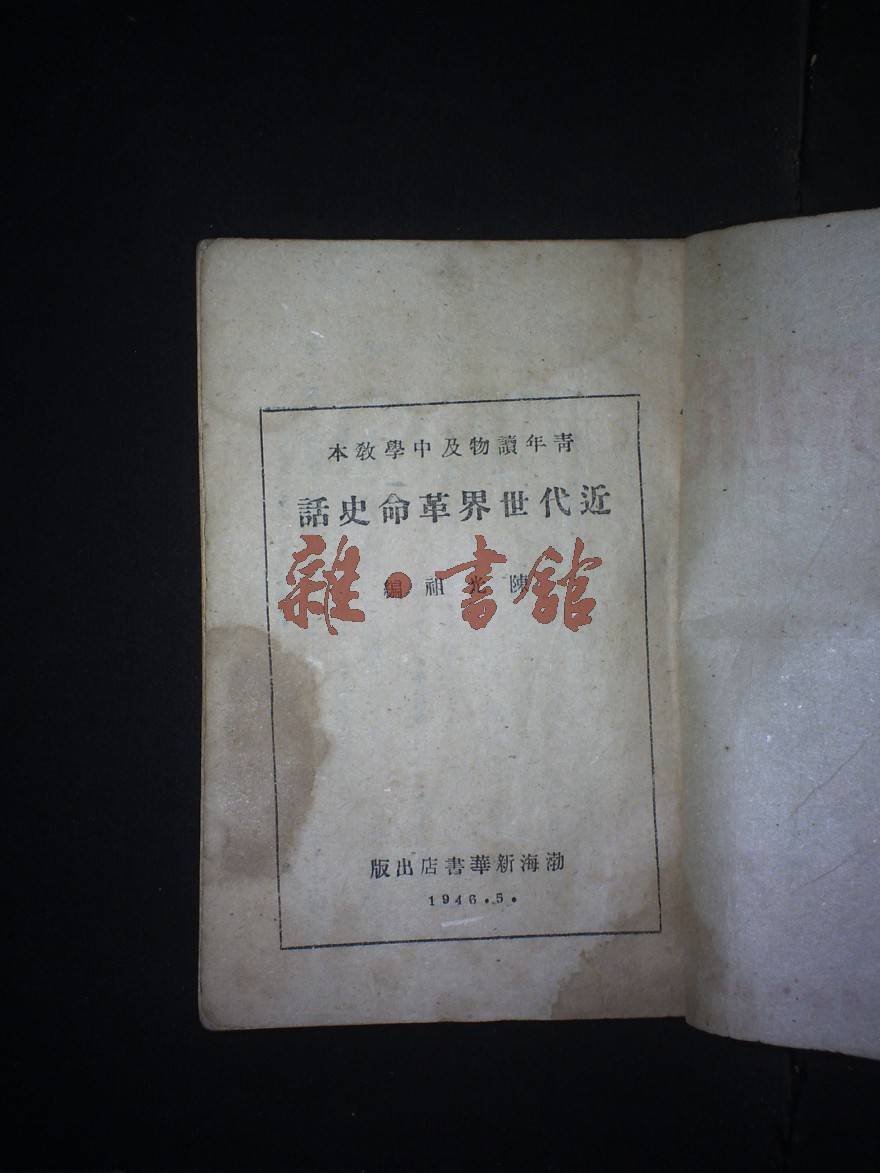 青年讀物及中學教本
近代世界革命史話
陳光祖編
雜·書館
渤海新華書店出版
1946.5.